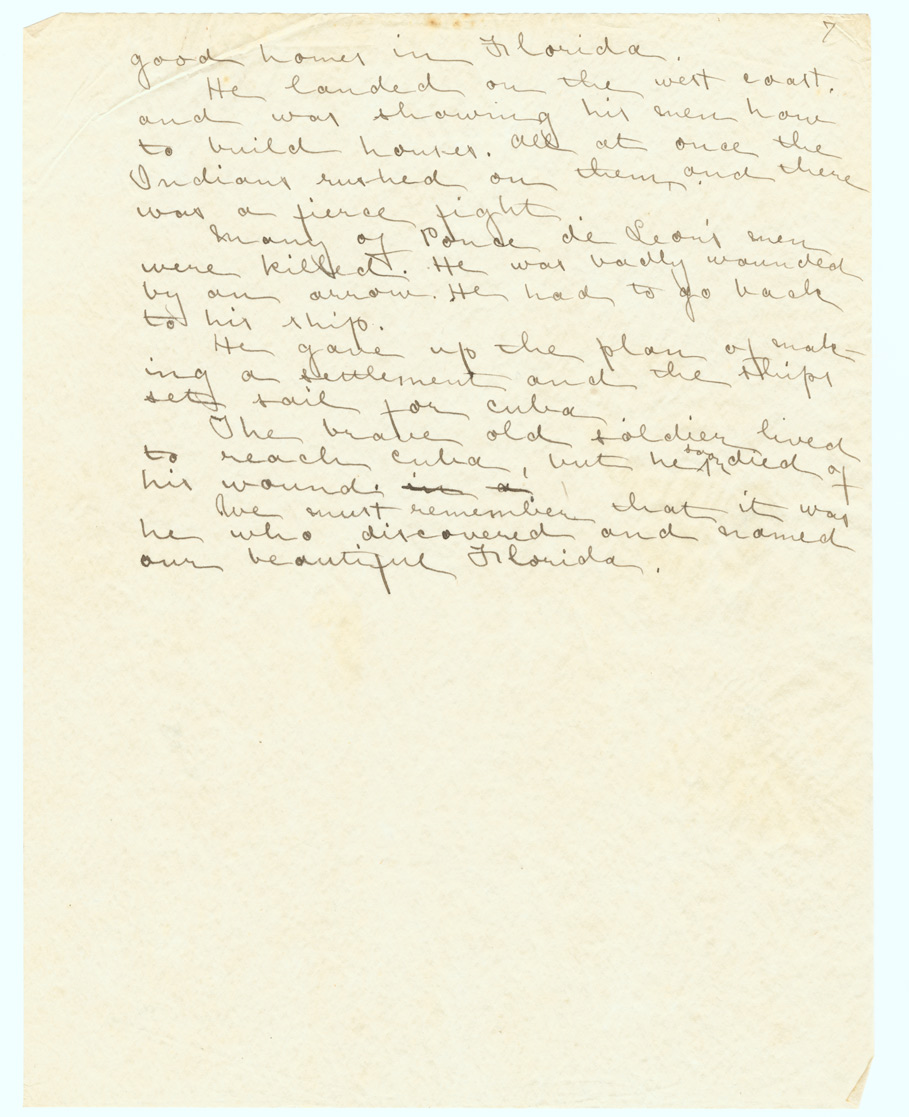 7
good homes in Florida.
He landed on the west coast.
and was showing his men how
to build houses. All at once the
Indians rushed on them, and there
was a fierce fight.
Many of Ponce de Leon's men
were killed. He was badly wounded
by an arrow. He had to go back
to his ship.
He gave up the plan of mak-
ing a settlement and the ships
set sail for Cuba
The brave old soldier lived
to reach Cuba, but he soon died of
his wound. in a
We must remember that it was
he who discovered and named
our beautiful Florida.